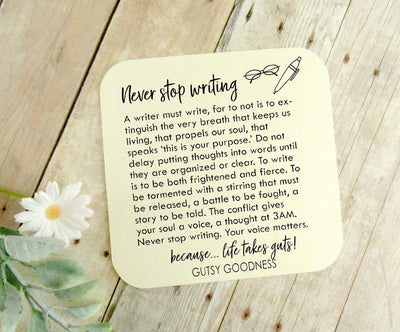 Never stop writing
A writer must write, for to not is to ex-
tinguish the very breath that keeps us
living, that propels our soul, that
speaks 'this is your purpose.' Do not
delay putting thoughts into words until
they are organized or clear. To write
is to be both frightened and fierce. To
be tormented with a stirring that must
be released, a battle to be fought, a
story to be told. The conflict gives
your soul a voice, a thought at 3AM.
Never stop writing. Your voice matters.
because... life takes guts!
GUTSY GOODNESS